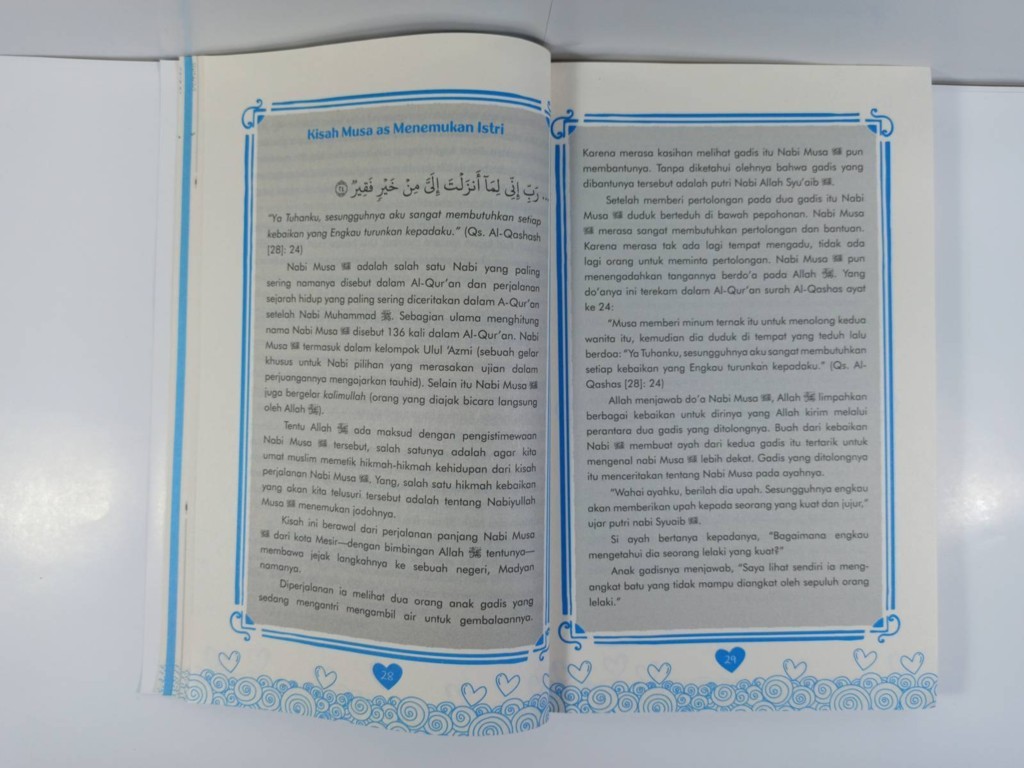 Kisah Musa as Menemukan Istri
... رَبِّ إِنِّي لِمَآ أَنزَلْتَ إِلَىَّ مِنْ خَيْرٍ فَقِيرٌ ٢٤
"Ya Tuhanku, sesungguhnya aku sangat membutuhkan setiap
kebaikan yang Engkau turunkan kepadaku." (Qs. Al-Qashash
[28]: 24)
Nabi Musa adalah salah satu Nabi yang paling
sering namanya disebut dalam Al-Qur'an dan perjalanan
sejarah hidup yang paling sering diceritakan dalam A-Qur'an
setelah Nabi Muhammad ﷺ. Sebagian ulama menghitung
nama Nabi Musa disebut 136 kali dalam Al-Qur'an. Nabi
Musa termasuk dalam kelompok Ulul 'Azmi (sebuah gelar
khusus untuk Nabi pilihan yang merasakan ujian dalam
perjuangannya mengajarkan tauhid). Selain itu Nabi Musa
juga bergelar kalimullah (orang yang diajak bicara langsung
oleh Allah).
Tentu Allah ada maksud dengan pengistimewaan
Nabi Musa tersebut, salah satunya adalah agar kita
umat muslim memetik hikmah-hikmah kehidupan dari kisah
perjalanan Nabi Musa. Yang, salah satu hikmah kebaikan
yang akan kita telusuri tersebut adalah tentang Nabiyullah
Musa menemukan jodohnya.
Kisah ini berawal dari perjalanan panjang Nabi Musa
dari kota Mesir—dengan bimbingan Allah tentunya—
membawa jejak langkahnya ke sebuah negeri, Madyan
namanya.
Diperjalanan ia melihat dua orang anak gadis yang
sedang mengantri mengambil air untuk gembalaannya.
28
Karena merasa kasihan melihat gadis itu Nabi Musa pun
membantunya. Tanpa diketahui olehnya bahwa gadis yang
dibantunya tersebut adalah putri Nabi Allah Syu'aib.
Setelah memberi pertolongan pada dua gadis itu Nabi
Musa duduk berteduh di bawah pepohonan. Nabi Musa
merasa sangat membutuhkan pertolongan dan bantuan.
Karena merasa tak ada lagi tempat mengadu, tidak ada
lagi orang untuk meminta pertolongan. Nabi Musa pun
menengadahkan tangannya berdo'a pada Allah. Yang
do'anya ini terekam dalam Al-Qur'an surah Al-Qashas ayat
ke 24:
"Musa memberi minum ternak itu untuk menolong kedua
wanita itu, kemudian dia duduk di tempat yang teduh lalu
berdoa: "Ya Tuhanku, sesungguhnya aku sangat membutuhkan
setiap kebaikan yang Engkau turunkan kepadaku." (Qs. Al-
Qashas [28]: 24)
Allah menjawab do'a Nabi Musa, Allah limpahkan
berbagai kebaikan untuk dirinya yang Allah kirim melalui
perantara dua gadis yang ditolongnya. Buah dari kebaikan
Nabi membuat ayah dari kedua gadis itu tertarik untuk
mengenal nabi Musa lebih dekat. Gadis yang ditolongnya
itu menceritakan tentang Nabi Musa pada ayahnya.
"Wahai ayahku, berilah dia upah. Sesungguhnya engkau
akan memberikan upah kepada seorang yang kuat dan jujur,"
ujar putri nabi Syuaib.
Si ayah bertanya kepadanya, "Bagaimana engkau
mengetahui dia seorang lelaki yang kuat?"
Anak gadisnya menjawab, "Saya lihat sendiri ia meng-
angkat batu yang tidak mampu diangkat oleh sepuluh orang
lelaki."
29